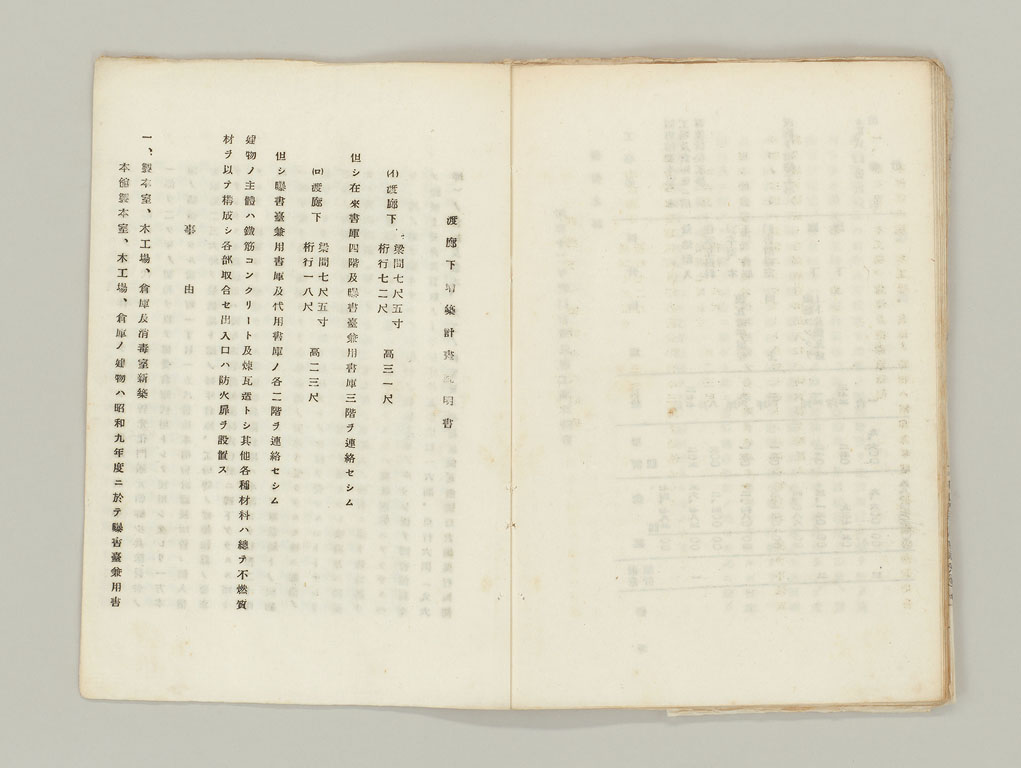 渡廊下増築計畫説明書
(イ)渡廊下 梁間七尺五寸
桁行七二尺 高三一尺
但シ在來書庫四階及曝書臺兼用書庫三階ヲ連絡セシム
(ロ)渡廊下 梁間七尺五寸
桁行一八尺 高二三尺
但シ曝書臺兼用書庫及代用書庫ノ各二階ヲ連絡セシム
建物ノ主體ハ鐵筋コンクリート及煉瓦造トシ其他各種材料ハ總テ不燃質
材ヲ以テ構成シ各部取合セ出入口ハ防火扉ヲ設置ス
事由
一、製本室、木工場、倉庫及消毒室新築
本館製本室、木工場、倉庫ノ建物ハ昭和九年度ニ於テ曝書臺兼用書